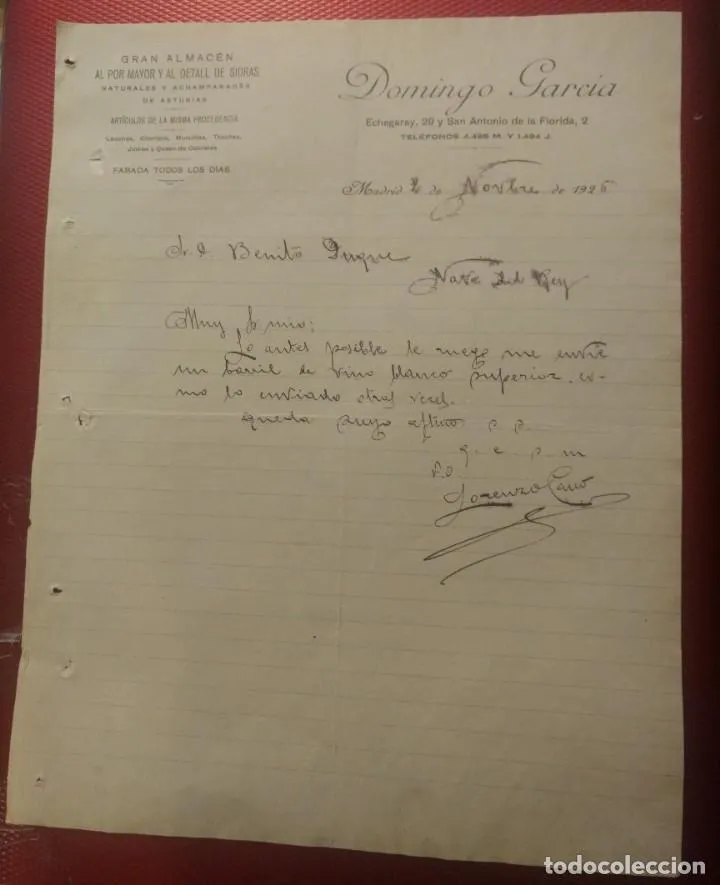 GRAN ALMACÉN
AL POR MAYOR Y AL DETALL DE SIDRAS
NATURALES Y ACHAMPANADAS
DE ASTURIAS
ARTÍCULOS DE LA MISMA PROCEDENCIA
Lacones, Chorizos, Morcillas, Truchas,
Jamón y Queso de Cabrales
FABADA TODOS LOS DIAS
Domingo García
Echegaray, 29 y San Antonio de la Florida, 2
TELÉFONOS 4.496 M. Y 1.494 J.
Madrid 2 de Novbre de 1926
Sr. D Benito Duque
Nava del Rey
Muy Sr mio:
Lo antes posible le ruego me envie
un barril de vino blanco superior co-
mo lo enviado otras veces.
Queda suyo aftmo
q. e. s. m
P.O.
Lorenzo Cano
todocoleccion